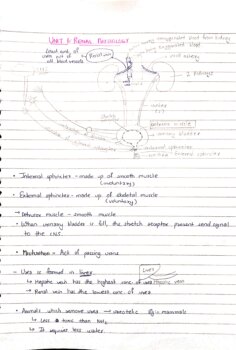 UNIT 6: RENAL PHYSIOLOGY
Least amt. of
urea out of
all blood vessels
Renal vein
renal artery
2 kidneys
detrusor muscle
urinary bladder
internal sphincter
external sphincter
• Internal sphincter - made up of smooth muscle
(involuntary)
• External sphincter - made up of skeletal muscle
(voluntary)
• Detrusor muscle - smooth muscle
• When urinary bladder is full, the stretch receptor present send signal
to the CNS.
• Micturition = Act of passing urine
• Urea is formed in liver.
↳ Hepatic vein has the highest conc of urea
↳ Renal vein has the lowest conc of urea
Liver
Hepatic vein
• Animals which remove urea → ureotelic Eg:- mammals
↳ Less toxic than NH3
↳ It requires less water